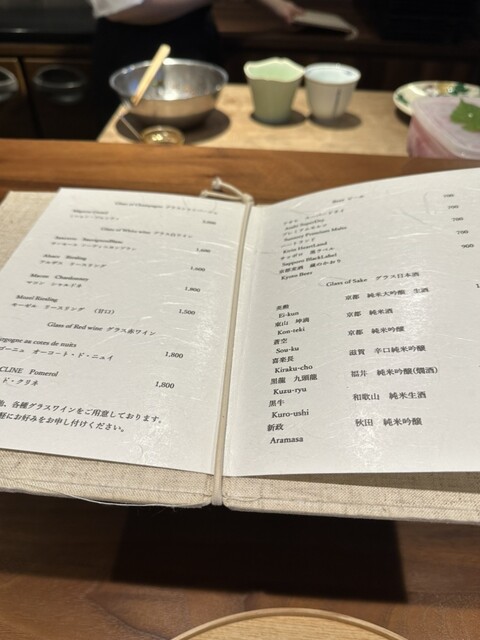 Glass of Champagne グラスシャンパーニュ
Glass of White wine グラス白ワイン
Sauvignon Blanc
1,600
Alsace Riesling
アルザス リースリング
1,600
Macon Chardonnay
マコン シャルドネ
1,800
Mosel Riesling
モーゼル リースリング (甘口)
1,500
Glass of Red wine グラス赤ワイン
ourgogne au cotes de nuits
ゴーニュ オーコート・ド・ニュイ
1,800
CLINE Pomerol
ド・クリネ
1,800
他、各種グラスワインをご用意しております。
軽にお好みをお申し付けください。
Beer ビール
700
Asahi SuperDry
700
Suntory Premium Malts
700
Kirin HeartLand
700
Sapporo BlackLabel
900
Kyoto Beer
Glass of Sake グラス日本酒
英勲 京都 純米大吟醸 生酒
Ei-kun
東山 坤滴 京都 純米酒
Kon-teki
蒼空 京都 純米吟醸
Sou-ku
喜楽長 滋賀 辛口純米吟醸
Kiraku-cho
黒龍 九頭龍 福井 純米吟醸(燗酒)
Kuzu-ryu
黒牛 和歌山 純米生酒
Kuro-ushi
新政 秋田 純米吟醸
Aramasa